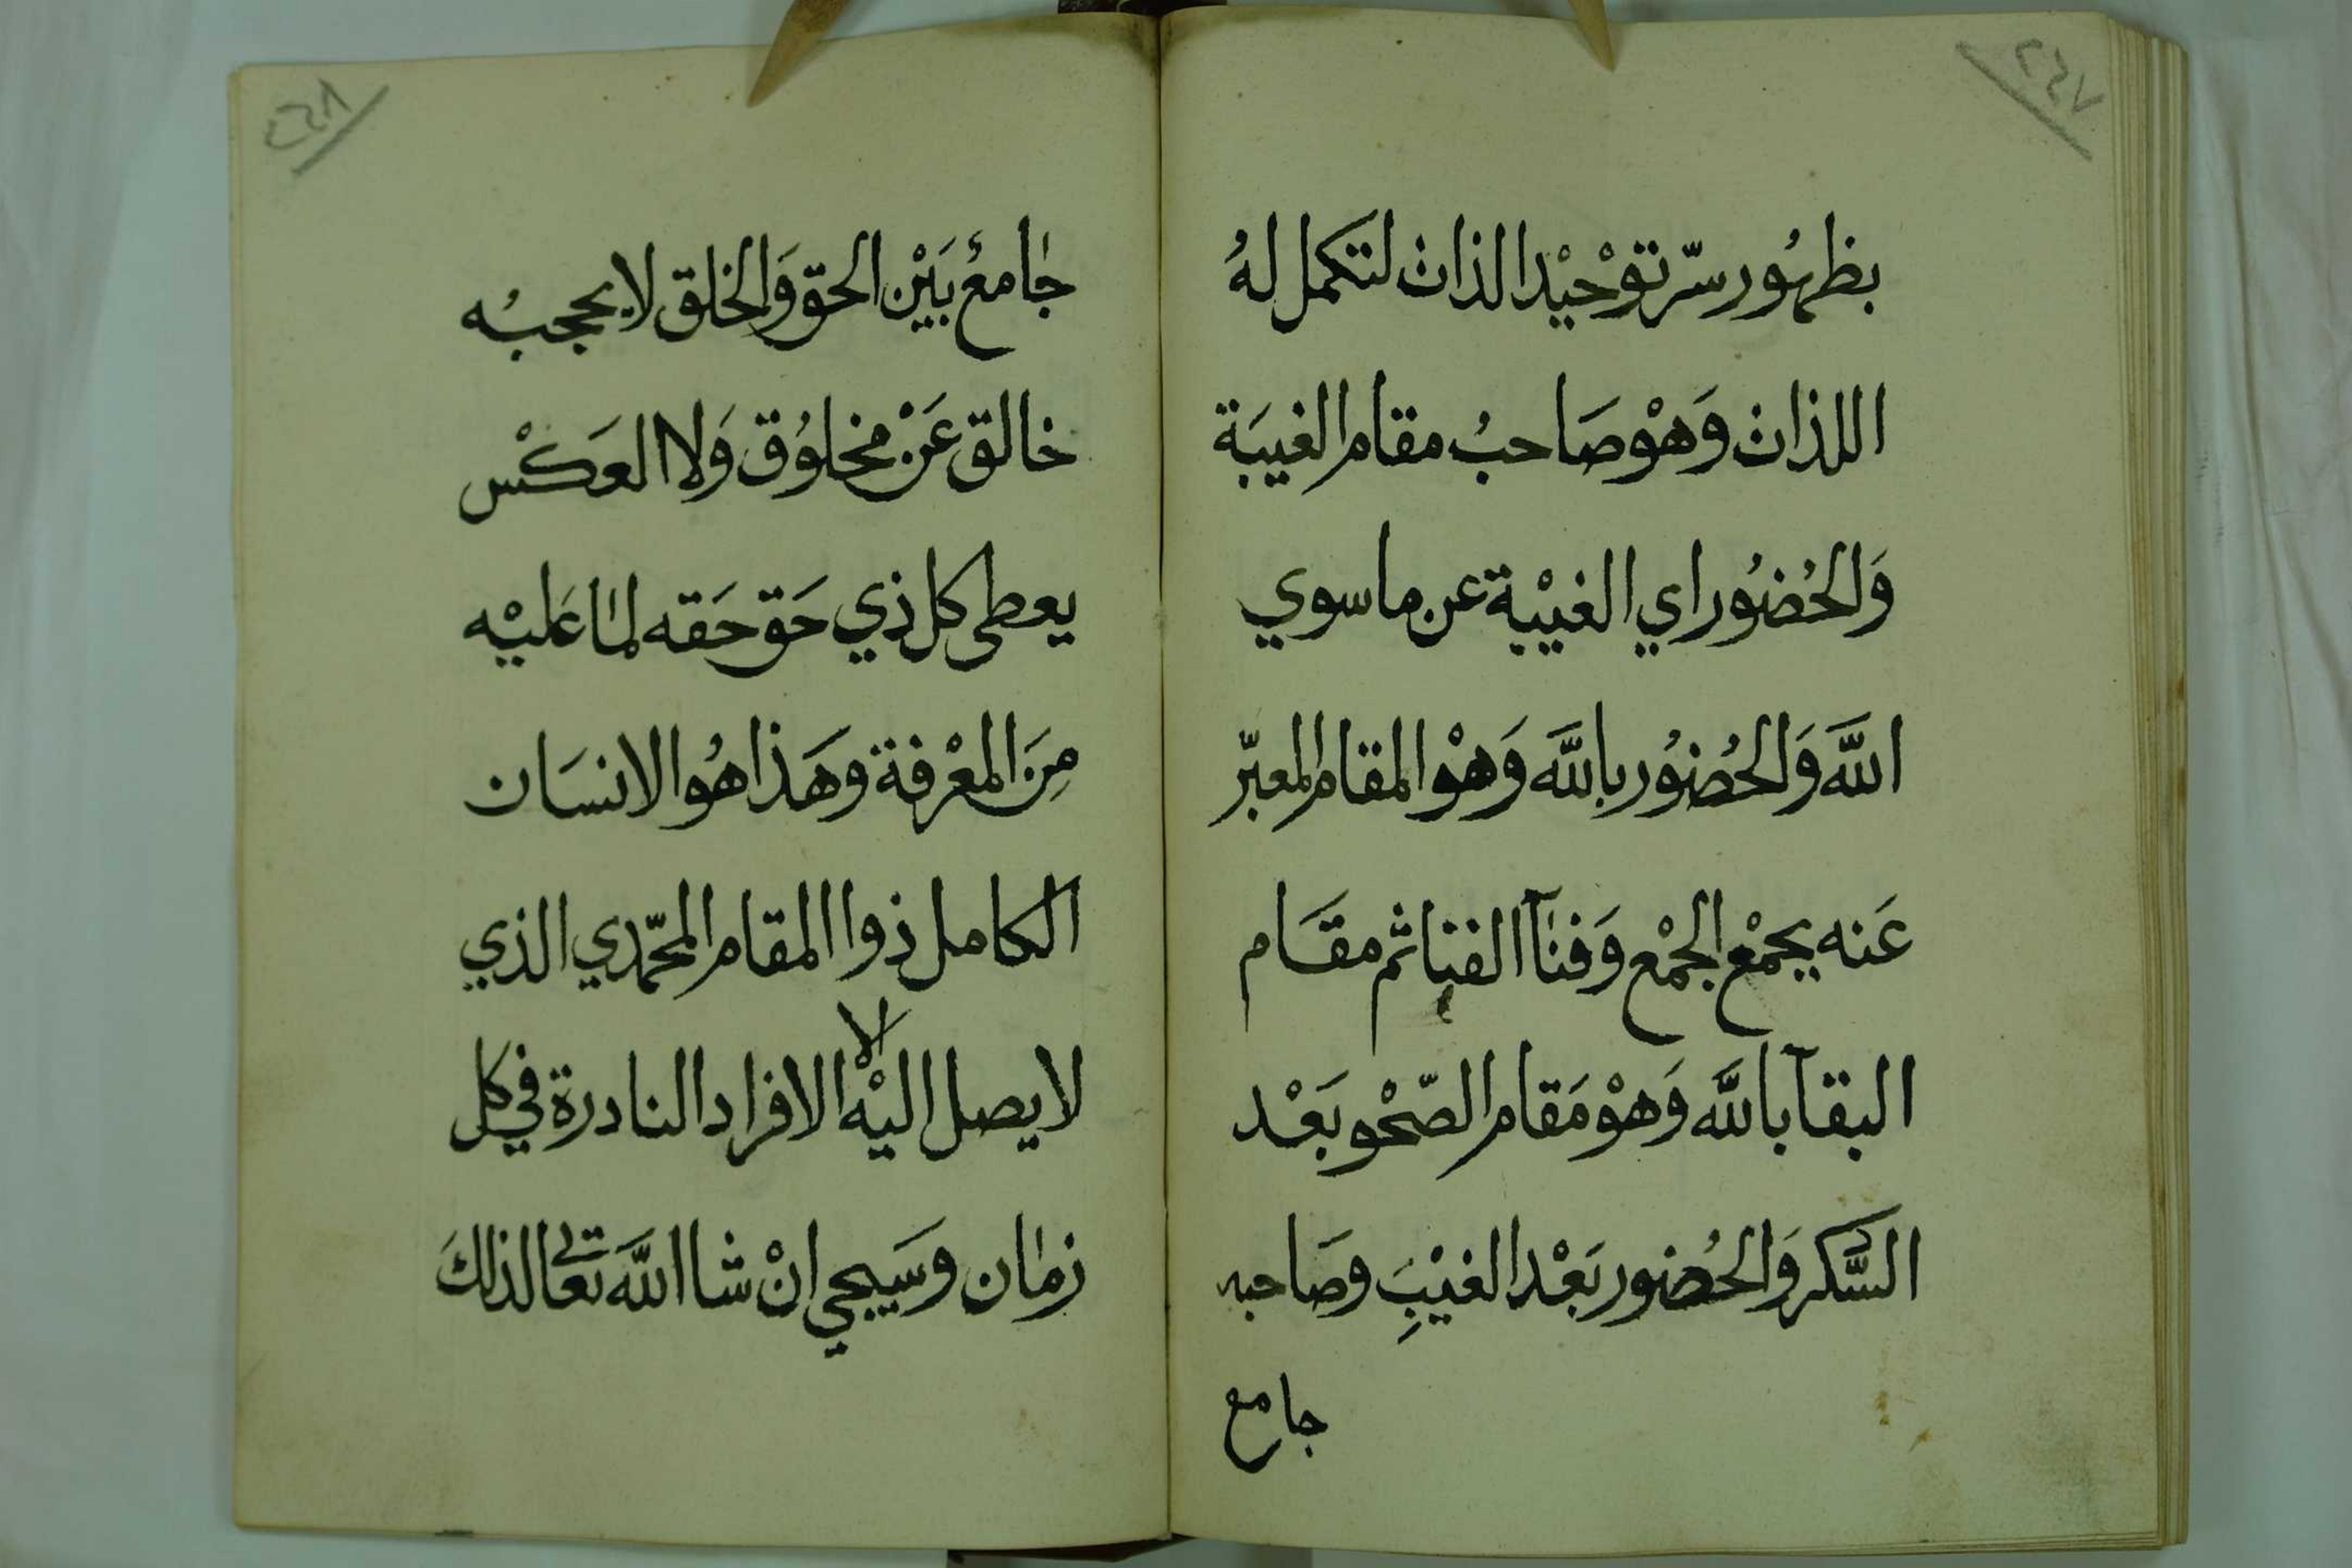 ٢٤٧
بظهُور سرّ توْحيْد الذات لتكمل لهُ
اللذات وَهْو صَاحبُ مقام الغيبَة
وَالحُضُور اي الغيْبة عن ما سوي
اللَّه وَالحُضُور باللَّه وَهْو المقام المعبّر
عَنه بجمْع الجمْع وَفنآ الفنا ثم مقَام
البقآ باللَّه وَهْو مَقام الصّحْو بَعْد
السَّكر وَالحُضور بَعْد الغيْبِ وصَاحبه
جامع
٢٤٨
جامعُ بَيْن الحق وَالخلق لا يحجبُه
خالق عَنْ مخلوُق وَلا العَكْس
يعطى كل ذي حَق حَقه لما عَليْه
مِنَ المعْرفة وهَذا هُو الانسَان
الكامل ذوا المقام المحمّدي الذي
لا يصل اليْه الا الافراد النادرة في كل
زمان وسَيجي انْ شا اللَّه تعَالى لذلكَ